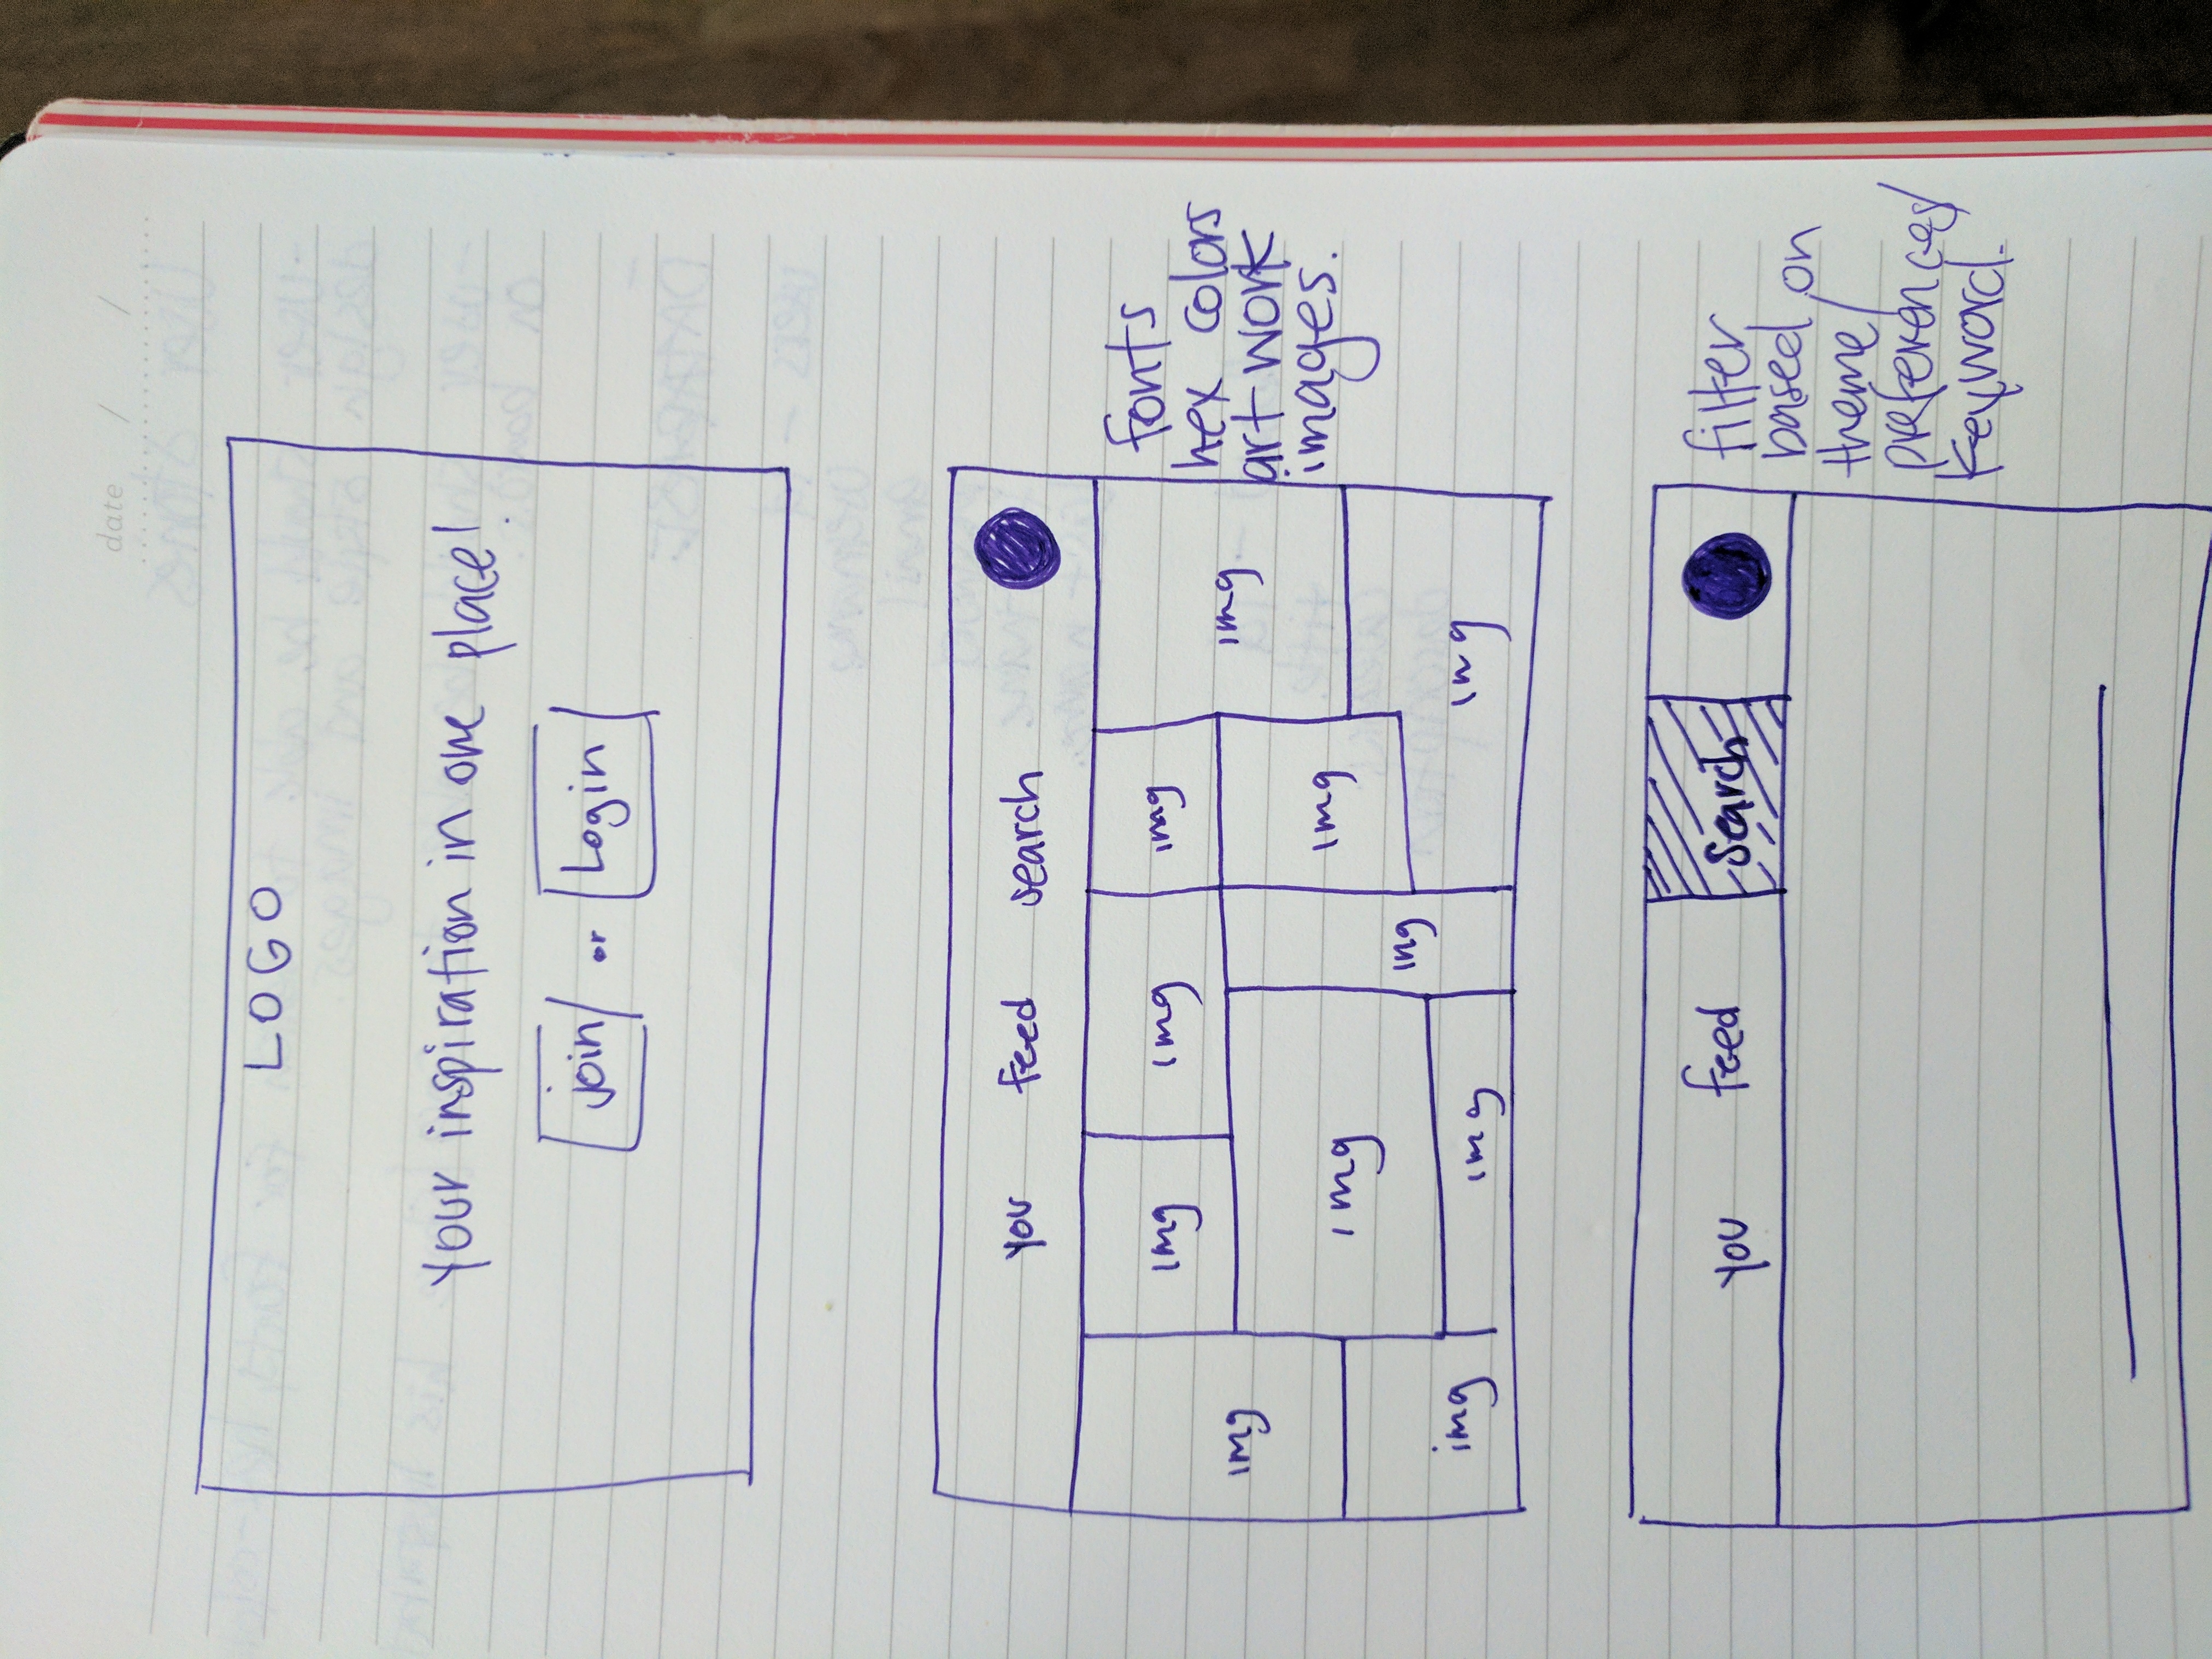 date / /
LOGO
Your inspiration in one place!
join or Login
You feed search
img img img img img
img img img
img img img
fonts
hex colors
art work
images.
You feed Search
filter
based on
theme/
preferences/
keyword.